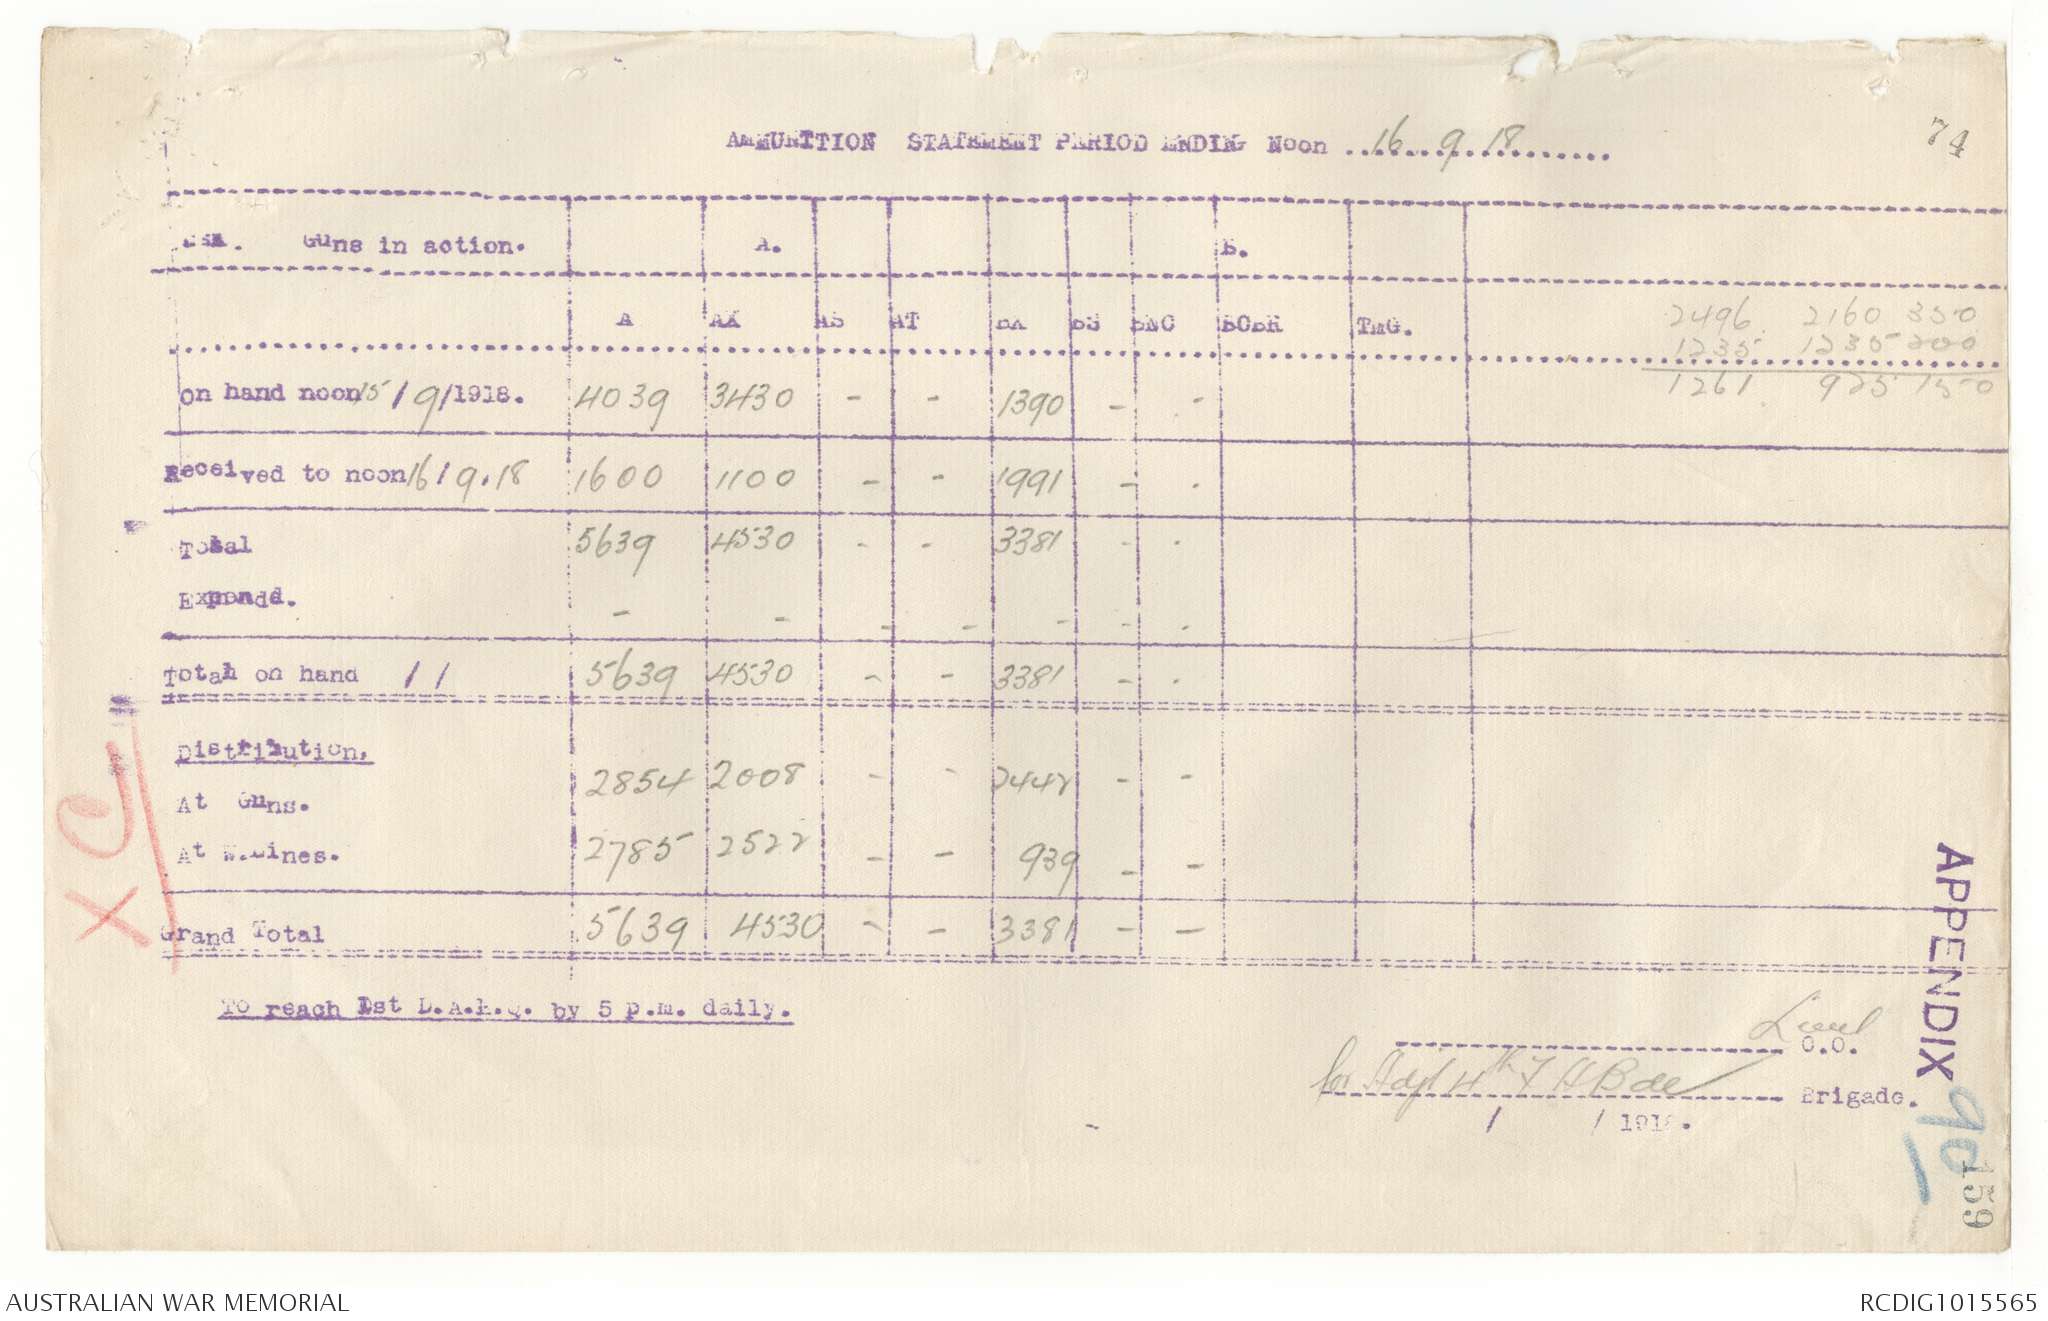 AMMUNITION STATEMENT PERIOD ENDING Noon ..16..9..18........
74
Guns in action. A. B.
A AX AS AT BX BS BNC BCBR TMG.
2496 2160 350
1235 1235 200
1261 925 150
On hand noon 15/9/1918. 4039 3430 - - 1390 - -
Received to noon 16/9.18 1600 1100 - - 1991 - -
Total 5639 4530 - - 3381 - -
Expended. - - - - - - -
Total on hand / / 5639 4530 - - 3381 - -
Distribution.
At Guns. 2854 2008 - - 2442 - -
At W.Lines. 2785 2522 - - 939 - -
Grand Total 5639 4530 - - 3381 - -
To reach 1st D.A.H.Q. by 5 p.m. daily.
Lieut
O.O.
for Adjt 4th F A Bde
Brigade.
/ / 1918.
XC
APPENDIX 90
159
AUSTRALIAN WAR MEMORIAL
RCDIG1015565